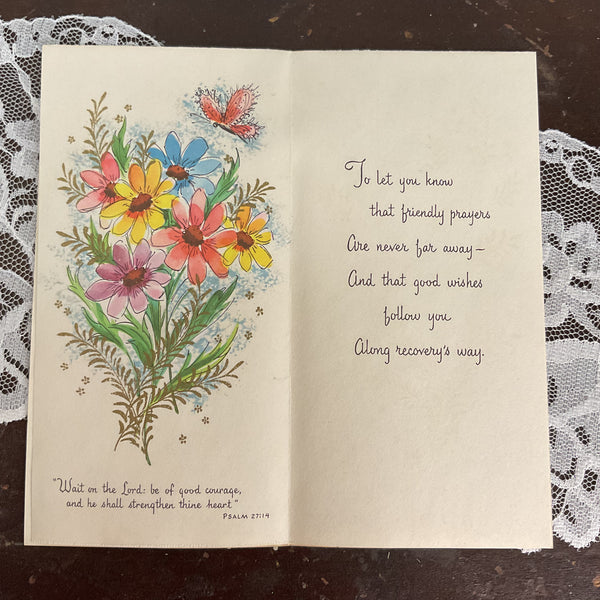 "Wait on the Lord: be of good courage,
and he shall strengthen thine heart"
PSALM 27:14
To let you know
that friendly prayers
Are never far away—
And that good wishes
follow you
Along recovery's way.